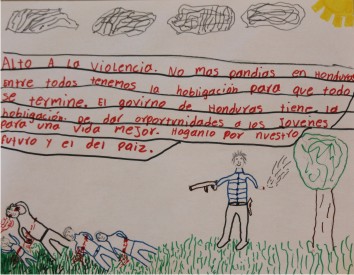 Alto A la violencia. No mas pandias en Honduras
Entre todos tenemos la hobligación para que todo
se termine. El govirno de Honduras tiene la
hobligación. De dar oportunidades a los Jovenes
para una vida mejor. Haganlo por nuestro
futuro y el del paiz.